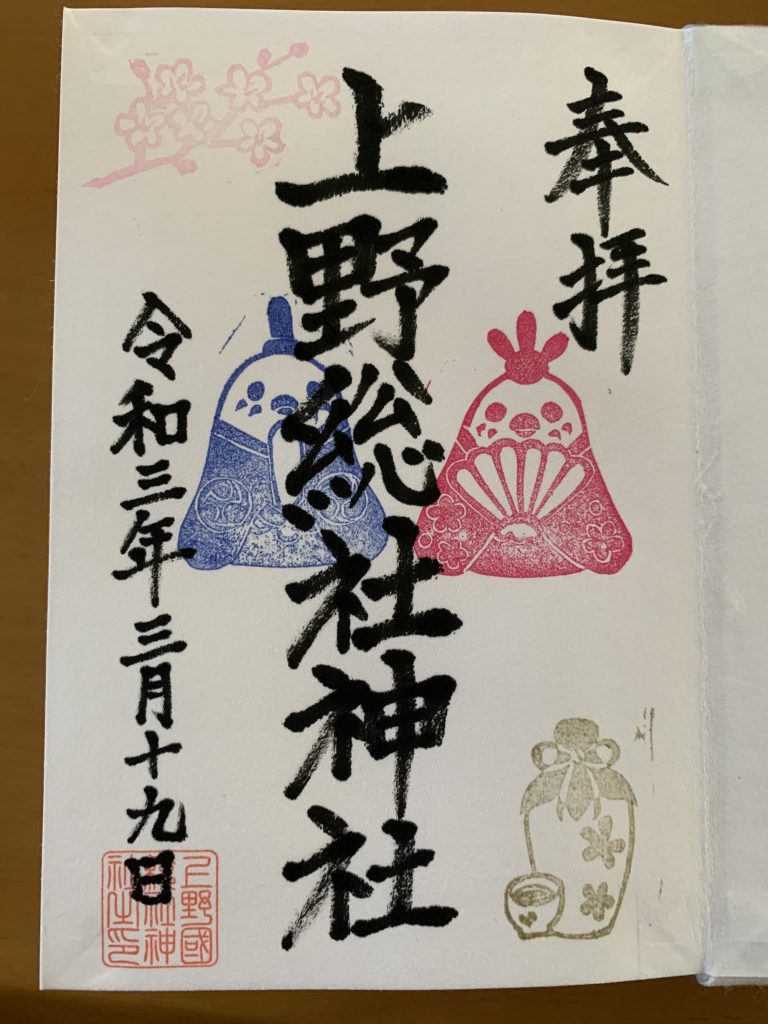 奉拝
上野総社神社
令和三年三月十九日
上野國
総社神
社之印